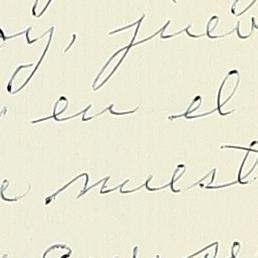 y, juev
en el
e nuest